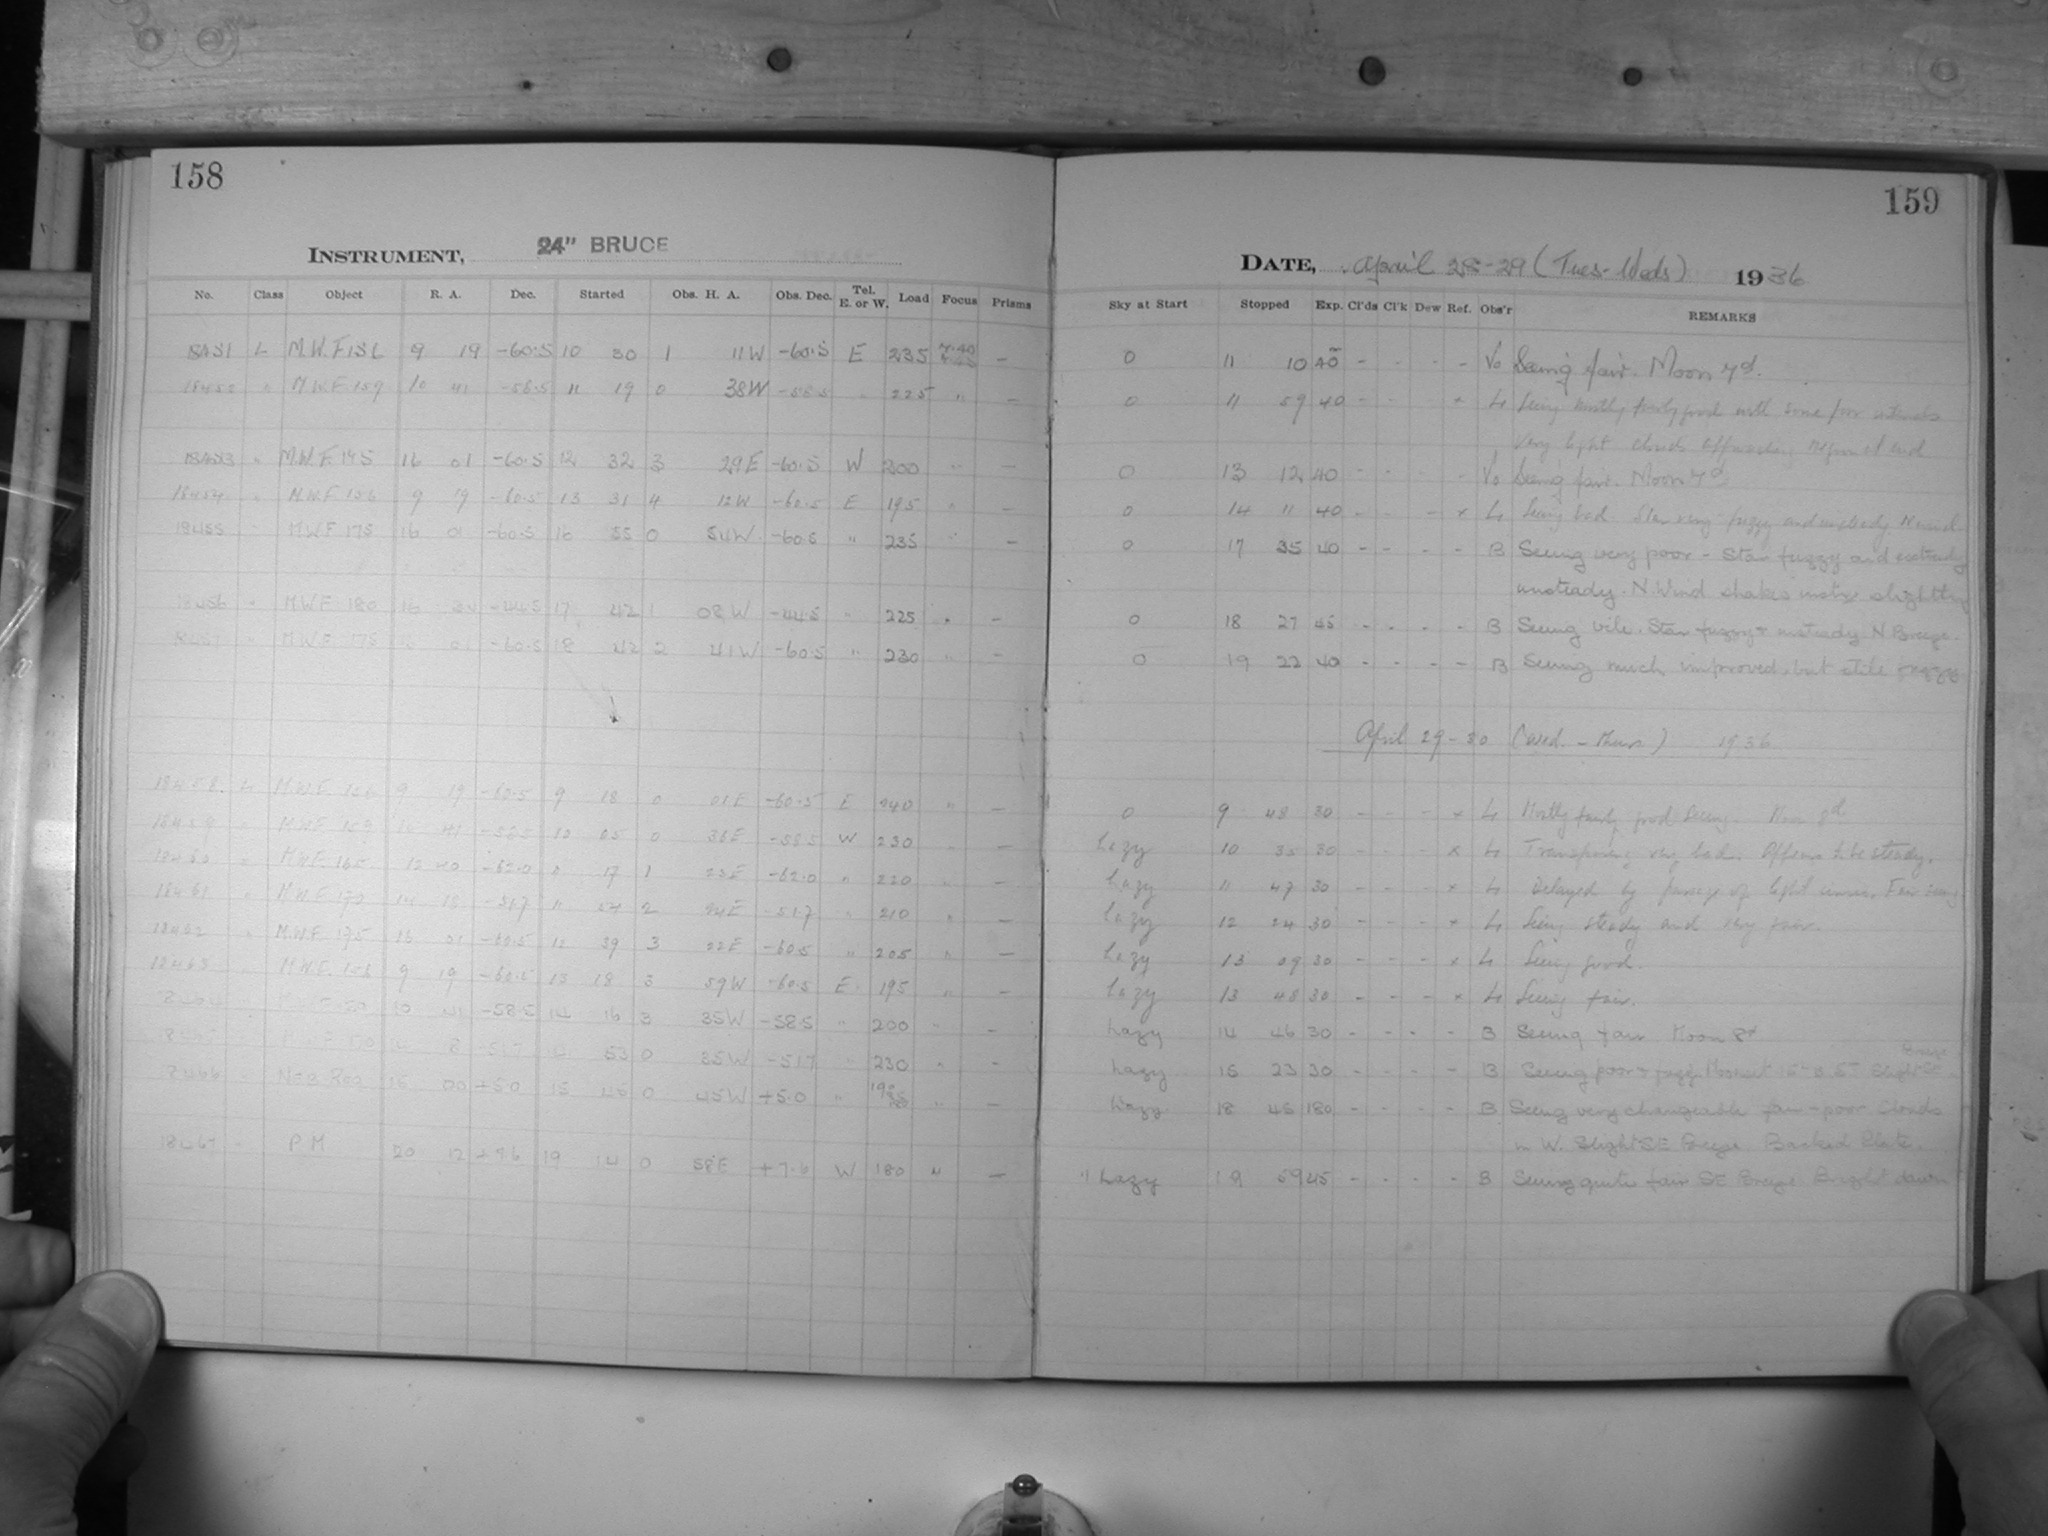 158
INSTRUMENT, 24" BRUCE
No. Class Object R. A. Dec. Started Obs. H. A. Obs. Dec. Tel. E. or W. Load Focus Prisms
18451 L M.W.F 156 9 19 -60.5 10 30 1 11W -60.5 E 235 —
18452 " M.W.F. 159 10 41 -58.5 11 19 0 38W -58.5 " 225 " —
18453 " M.W.F. 175 16 01 -60.5 12 32 3 29E -60.5 W 200 " —
18454 " M.W.F. 156 9 19 -60.5 13 31 4 12W -60.5 E 195 " —
18455 " M.W.F 175 16 01 -60.5 16 55 0 54W -60.5 " 235 " —
18456 " M.W.F. 180 16 34 -44.5 17 42 1 08W -44.5 " 225 " —
18457 " M.W.F. 175 16 01 -60.5 18 42 2 41W -60.5 " 230 " —
18458 L M.W.F. 156 9 19 -60.5 9 18 0 01E -60.5 E 240 " —
18459 " M.W.F. 159 10 41 -58.5 10 05 0 36E -58.5 W 230 " —
18460 " M.W.F. 165 12 40 -62.0 11 17 1 23E -62.0 " 220 " —
18461 " M.W.F. 170 14 18 -51.7 11 54 2 24E -51.7 " 210 " —
18462 " M.W.F. 175 16 01 -60.5 12 39 3 22E -60.5 " 205 " —
18463 " M.W.F. 156 9 19 -60.5 13 18 3 59W -60.5 E 195 " —
18464 " 10 41 -58.5 14 16 3 35W -58.5 " 200 " —
14 18 -51.7 14 53 0 35W -51.7 " 230 " —
18466 15 00 +5.0 15 45 0 45W +5.0 " " —
18467 " P M 20 12 +7.6 19 14 0 58E +7.6 W 180 " —
159
DATE, April 28-29 (Tues-Weds) 1936
Sky at Start Stopped Exp. Cl'ds Cl'k Dew Ref. Obs'r REMARKS
0 11 10 40 - - - - Vo Seeing fair. Moon 7d.
0 11 59 40 - - - x L Seeing mostly fairly good with some poor intervals
Very light clouds
0 13 12 40 - - - - Vo Seeing fair. Moon 7d.
0 14 11 40 - - - x L Seeing bad. Star very fuzzy and unsteady N wind
0 17 35 40 - - - - B Seeing very poor - Star fuzzy and
unsteady. N. Wind shakes instr slightly
0 18 27 45 - - - - B Seeing vile. Star fuzzy & unsteady N Breeze.
0 19 22 40 - - - - B Seeing much improved, but still fuzzy
April 29-30 (Wed. - Thurs) 1936
0 9 48 30 - - - x L Mostly fairly good Seeing. Moon 8d
Hazy 10 35 30 - - - x L Transparency very bad. Appears to be steady.
Hazy 11 47 30 - - - x L Delayed by passage of light cirrus. Fair seeing.
Hazy 12 24 30 - - - x L Seeing steady and very fair.
Hazy 13 09 30 - - - x L Seeing good.
Hazy 13 48 30 - - - x L Seeing fair.
Hazy 14 46 30 - - - - B Seeing fair Moon 8d
Hazy 15 23 30 - - - - B Seeing poor & fuzzy Moonset Slight SE Breeze
Hazy 18 45 180 - - - - B Seeing very changeable fair - poor. Clouds
in W. Slight SE Breeze Backed Plate.
" Hazy 19 59 45 - - - - B Seeing quite fair SE Breeze Bright dawn